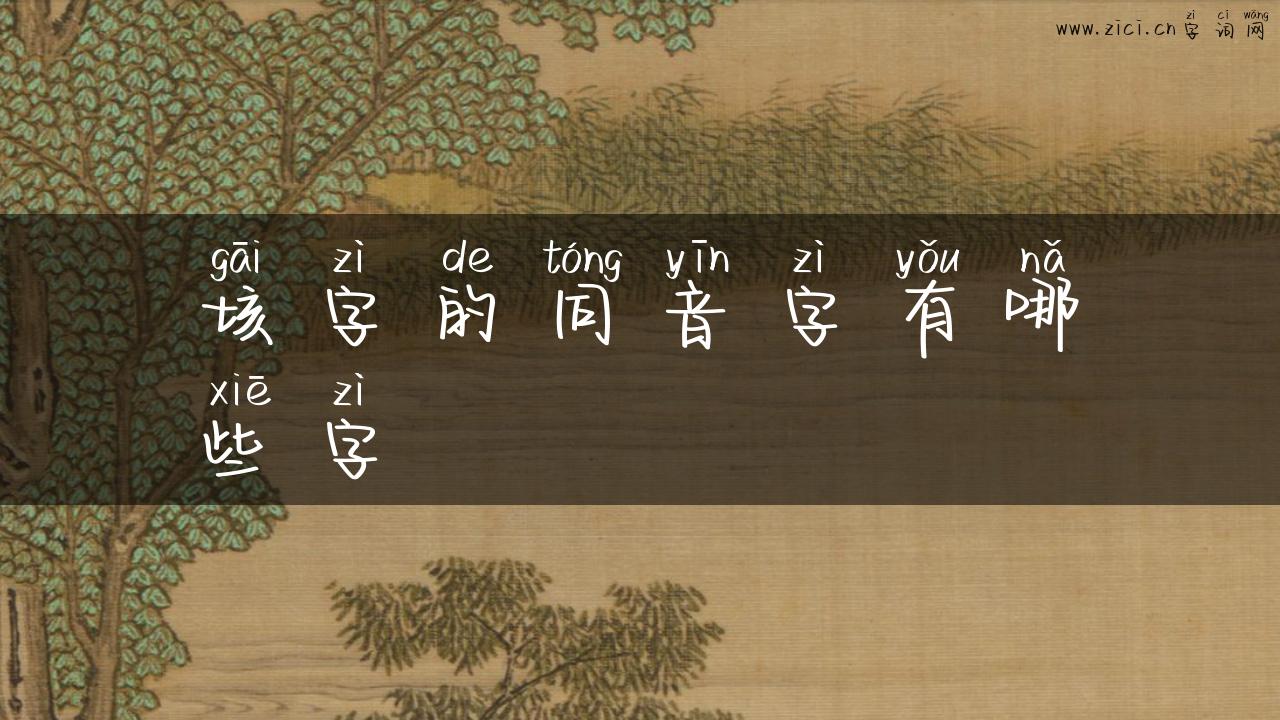 zì cí wǎng
www.zici.cn字词网
gāi zì de tóng yīn zì yǒu nǎ
垓字的同音字有哪
xiē zì
些字